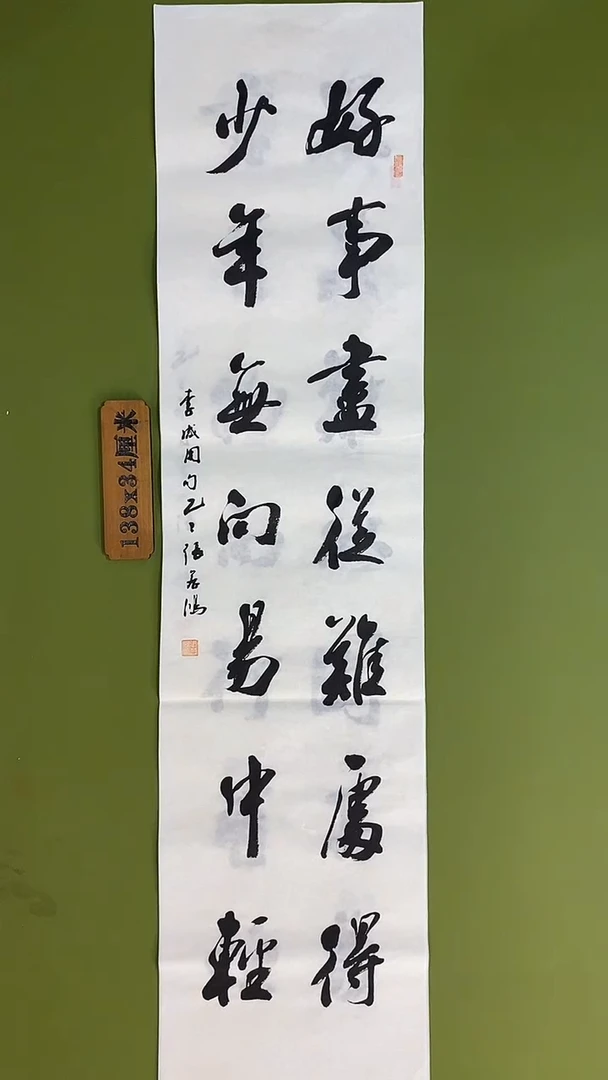 好事盡從難處得
少年無向易中輕
李咸用句乙巳
138x34厘米